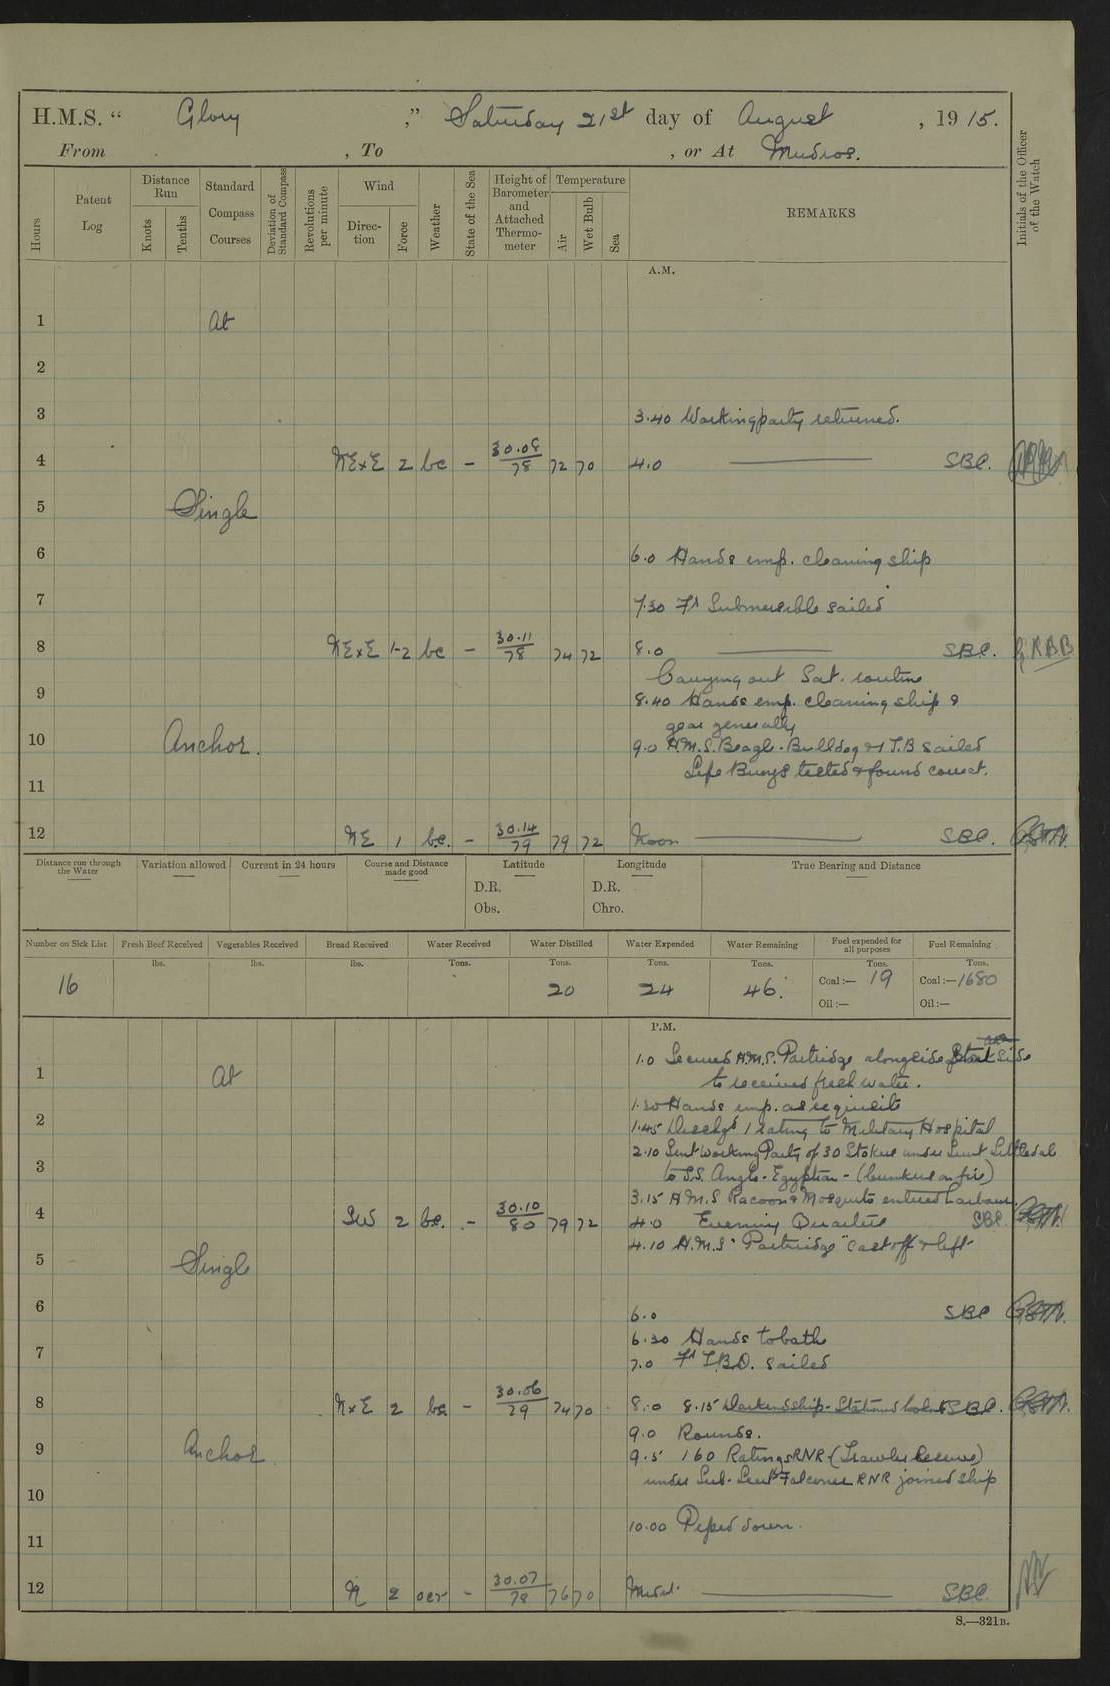 H.M.S. “ Glory ,” Saturday 21st day of August , 1915.
From , To , or At Mudros.
Hours
Patent Log
Distance Run
Knots
Tenths
Standard Compass Courses
Deviation of Standard Compass
Revolutions per minute
Wind
Direction
Force
Weather
State of the Sea
Height of Barometer and Attached Thermometer
Temperature
Air
Wet Bulb
Sea
REMARKS
Initials of the Officer of the Watch
A.M.
1 At
2
3 3.40 Working party returned.
4 NExE 2 bc - 30.08/78 72 70 4.0 SBC.
5 Single
6 6.0 Hands emp. cleaning ship
7 7.30 Fr Submersible sailed
8 NExE 1-2 bc - 30.11/78 74 72 8.0 SBC. RBB
Carrying out Sat. routine
9 8.40 Hands emp. cleaning ship &
gear generally
10 Anchor. 9.0 H.M.S. Beagle - Bulldog & 1 T.B sailed
Life Buoys tested & found correct.
11
12 NE 1 b.c. - 30.14/79 79 72 Noon SBC.
Distance run through the Water
Variation allowed
Current in 24 hours
Course and Distance made good
Latitude
D.R.
Obs.
Longitude
D.R.
Chro.
True Bearing and Distance
Number on Sick List
Fresh Beef Received
Vegetables Received
Bread Received
Water Received
Water Distilled
Water Expended
Water Remaining
Fuel expended for all purposes
Fuel Remaining
lbs. lbs. lbs. Tons. Tons. Tons. Tons. Tons. Tons.
16 20 24 46. Coal:— 19 Coal:—1680
Oil:— Oil:—
P.M.
1.0 Secured H.M.S. Partridge alongside side
1 At to received fresh water.
1.30 Hands emp. as requisite
2 1.45 Dischgd 1 rating to Military Hospital
2.10 Sent Working Party of 30 Stokers under Lieut Littledale
3 to S.S. Anglo-Egyptian - (bunkers on fire)
3.15 H.M.S Racoon & Mosquito entered harbour.
4 SW 2 bc. - 30.10/80 79 72 4.0 Evening Quarters SBC.
4.10 H.M.S "Partridge" cast off & left
5 Single
6 6.0 SBC
6.30 Hands to bathe
7 7.0 Fr T.B.D. sailed
8 NxE 2 bc - 30.06/79 74 70 8.0 8.15 Darkened ship - Stationed lookouts SBC.
9.0 Rounds.
9 Anchor 9.5 160 Ratings RNR (Trawler Reserve)
under Sub-Lieut Falconer RNR joined ship
10
10.00 Piped down.
11
12 N 2 ocr - 30.07/78 76 70 Midnt. SBC.
S.—321B.